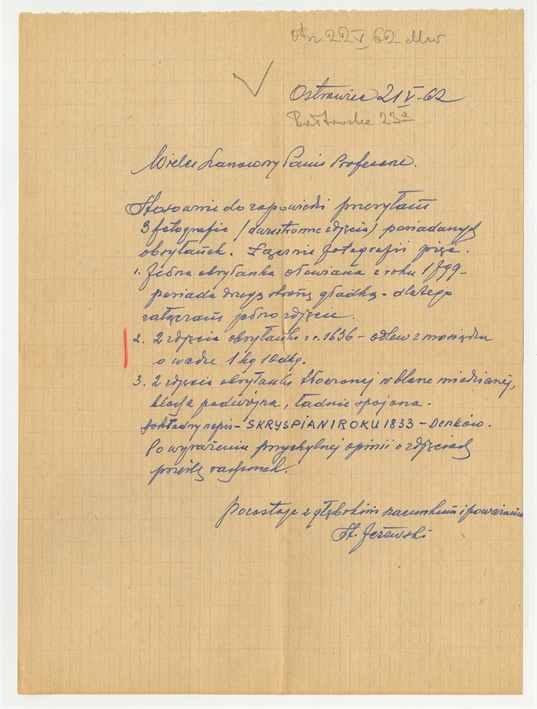 Otrz. 22 V 62 MW
Ostrowiec 21 V-62
23a
Wielce Szanowny Panie Profesorze.
Stosownie do zapowiedzi przesyłam
3 fotografie (dwustronne zdjęcia) posiadanych
obrylanek. Łącznie fotografii pięć.
1. Jedna obrylanka ołowiana z roku 1799-
posiada drugą stronę gładką - dlatego
załączam jedno zdjęcie.
2. 2 zdjęcia obrylanki z r. 1636 - odlew z mosiądzu
o wadze 1 kg 10 dkg.
3. 2 zdjęcia obrylanki tłoczonej w blasze miedzianej,
blacha podwójna, ładnie spojona.
Dokładny napis - SKRYSPIAN I ROKU 1833 - Denków.
Po wyrażeniu przychylnej opinii o zdjęciach
prześlę rachunek.
Pozostaję z głębokim szacunkiem i poważaniem
St. Jeżewski